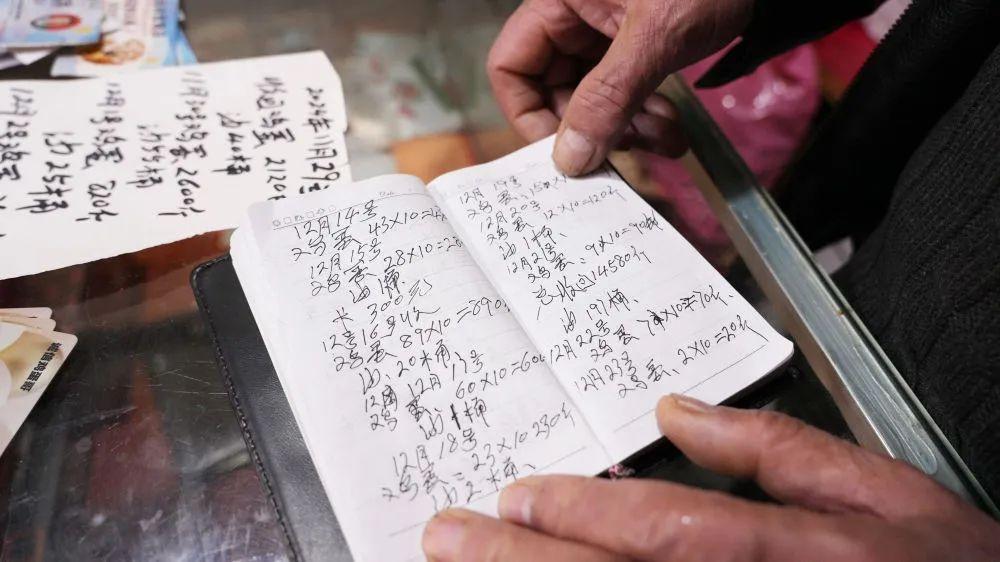 2024年11月29号
收回鸡蛋 2120
油40桶
鸡蛋2600个
油55桶
鸡蛋 820个
油25桶
鸡蛋
12月14号
鸡蛋、43×10=4
12月15号
鸡蛋、28×10=28
油1桶
卡 300元
12号16号收
鸡蛋、89×10=890
油、20桶
12月
鸡蛋 60×10=60
油1桶
12月18号
鸡蛋=23×10 230个
油2桶、
12月19号
鸡蛋、15×
12月20号
鸡蛋、12×10=120个
油1桶、
12月21号
鸡蛋、9×10=90
总收回14580个
油191桶、
12月22号
鸡蛋 7×10=70个、
12月23号
鸡蛋、2×10=20个